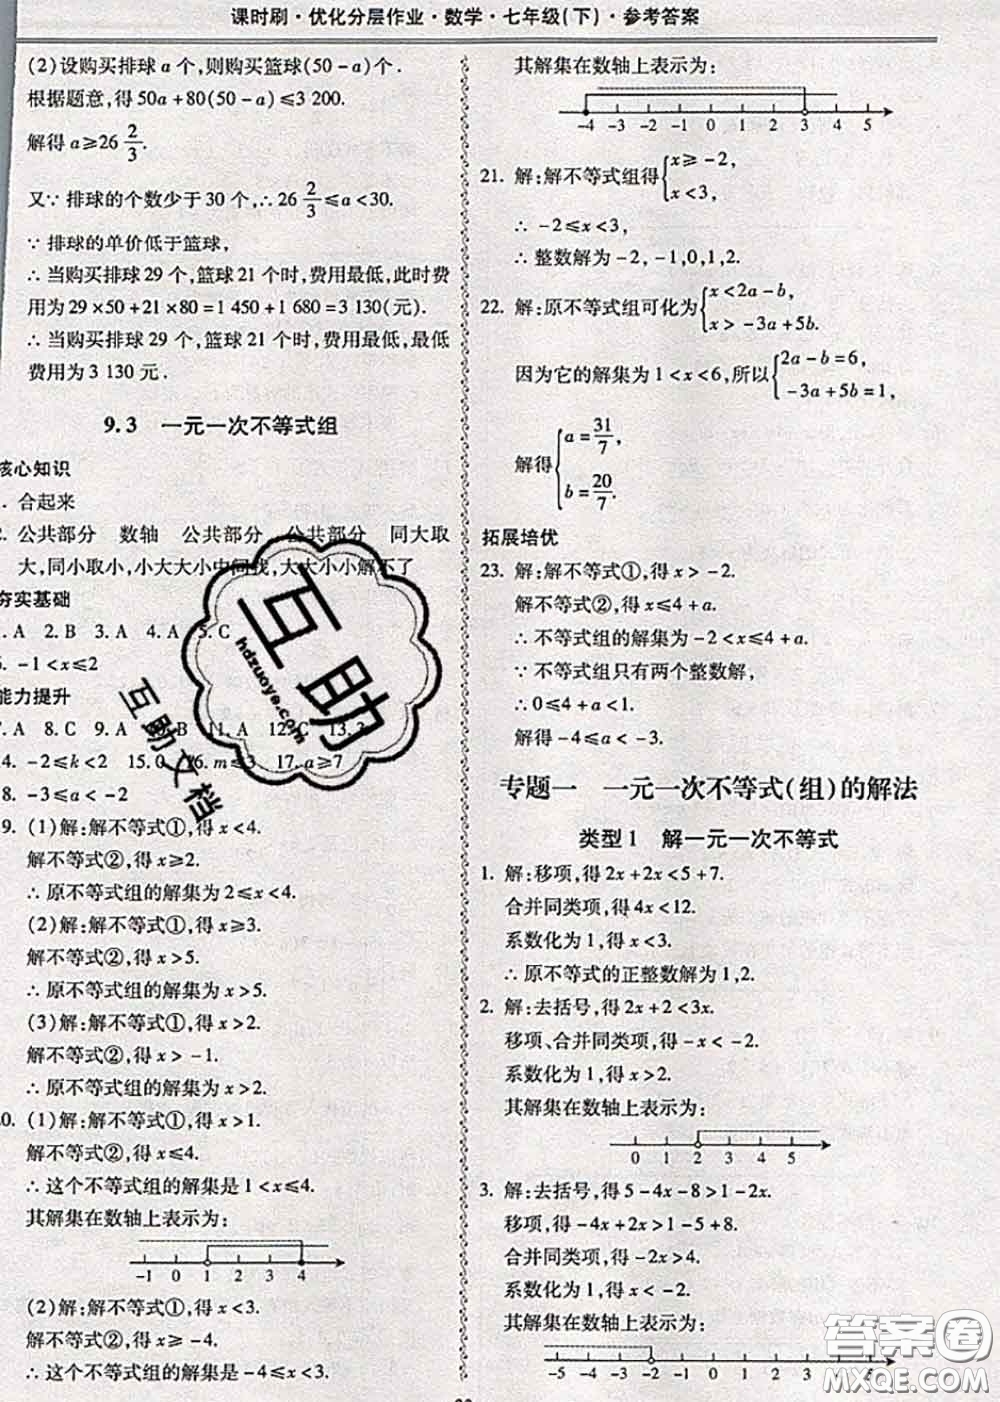 课时刷·优化分层作业·数学·七年级(下)·参考答案
(2)设购买排球 a 个,则购买篮球(50-a)个.
根据题意,得 50a+80(50-a)≤3 200.
解得 a≥26 2/3.
又∵ 排球的个数少于 30 个,∴ 26 2/3 ≤a<30.
∵ 排球的单价低于篮球,
∴ 当购买排球 29 个,篮球 21 个时,费用最低,此时费
用为 29×50+21×80=1 450+1 680=3 130(元).
∴ 当购买排球 29 个,篮球 21 个时,费用最低,最低
费用为 3 130 元.
9.3 一元一次不等式组
核心知识
. 合起来
. 公共部分 数轴 公共部分 公共部分 同大取
大,同小取小,小大大小中间找,大大小小解不了
夯实基础
. A 2. B 3. A 4. A 5. C
. -1<x≤2
能力提升
7. A 8. C 9. A 10. B 11. A 12. C 13. 3
4. -2≤k<2 15. 0 16. m≤3 17. a≥7
8. -3≤a<-2
9. (1)解:解不等式①,得 x<4.
解不等式②,得 x≥2.
∴ 原不等式组的解集为 2≤x<4.
(2)解:解不等式①,得 x≥3.
解不等式②,得 x>5.
∴ 原不等式组的解集为 x>5.
(3)解:解不等式①,得 x>2.
解不等式②,得 x>-1.
∴ 原不等式组的解集为 x>2.
20. (1)解:解不等式①,得 x>1.
解不等式②,得 x≤4.
∴ 这个不等式组的解集是 1<x≤4.
其解集在数轴上表示为:
-1 0 1 2 3 4
(2)解:解不等式①,得 x<3.
解不等式②,得 x≥-4.
∴ 这个不等式组的解集是 -4≤x<3.
其解集在数轴上表示为:
-4 -3 -2 -1 0 1 2 3 4 5
21. 解:解不等式组得{x≥-2,
x<3,
∴ -2≤x<3,
∴ 整数解为-2,-1,0,1,2.
22. 解:原不等式组可化为{x<2a-b,
x>-3a+5b.
因为它的解集为 1<x<6,所以{2a-b=6,
-3a+5b=1,
解得{a=31/7,
b=20/7.
拓展培优
23. 解:解不等式①,得 x>-2.
解不等式②,得 x≤4+a.
∴ 不等式组的解集为-2<x≤4+a.
∵ 不等式组只有两个整数解,
∴ 0≤4+a<1.
解得-4≤a<-3.
专题一 一元一次不等式(组)的解法
类型1 解一元一次不等式
1. 解:移项,得 2x+2x<5+7.
合并同类项,得 4x<12.
系数化为 1,得 x<3.
∴ 原不等式的正整数解为 1,2.
2. 解:去括号,得 2x+2<3x.
移项、合并同类项,得-x<-2.
系数化为 1,得 x>2.
其解集在数轴上表示为:
0 1 2 3 4 5
3. 解:去括号,得 5-4x-8>1-2x.
移项,得-4x+2x>1-5+8.
合并同类项,得-2x>4.
系数化为 1,得 x<-2.
其解集在数轴上表示为:
-5 -4 -3 -2 -1 0 1 2 3 4 5
互助
hdzuoye.com
互助文档
答案圈
MXQE.COM